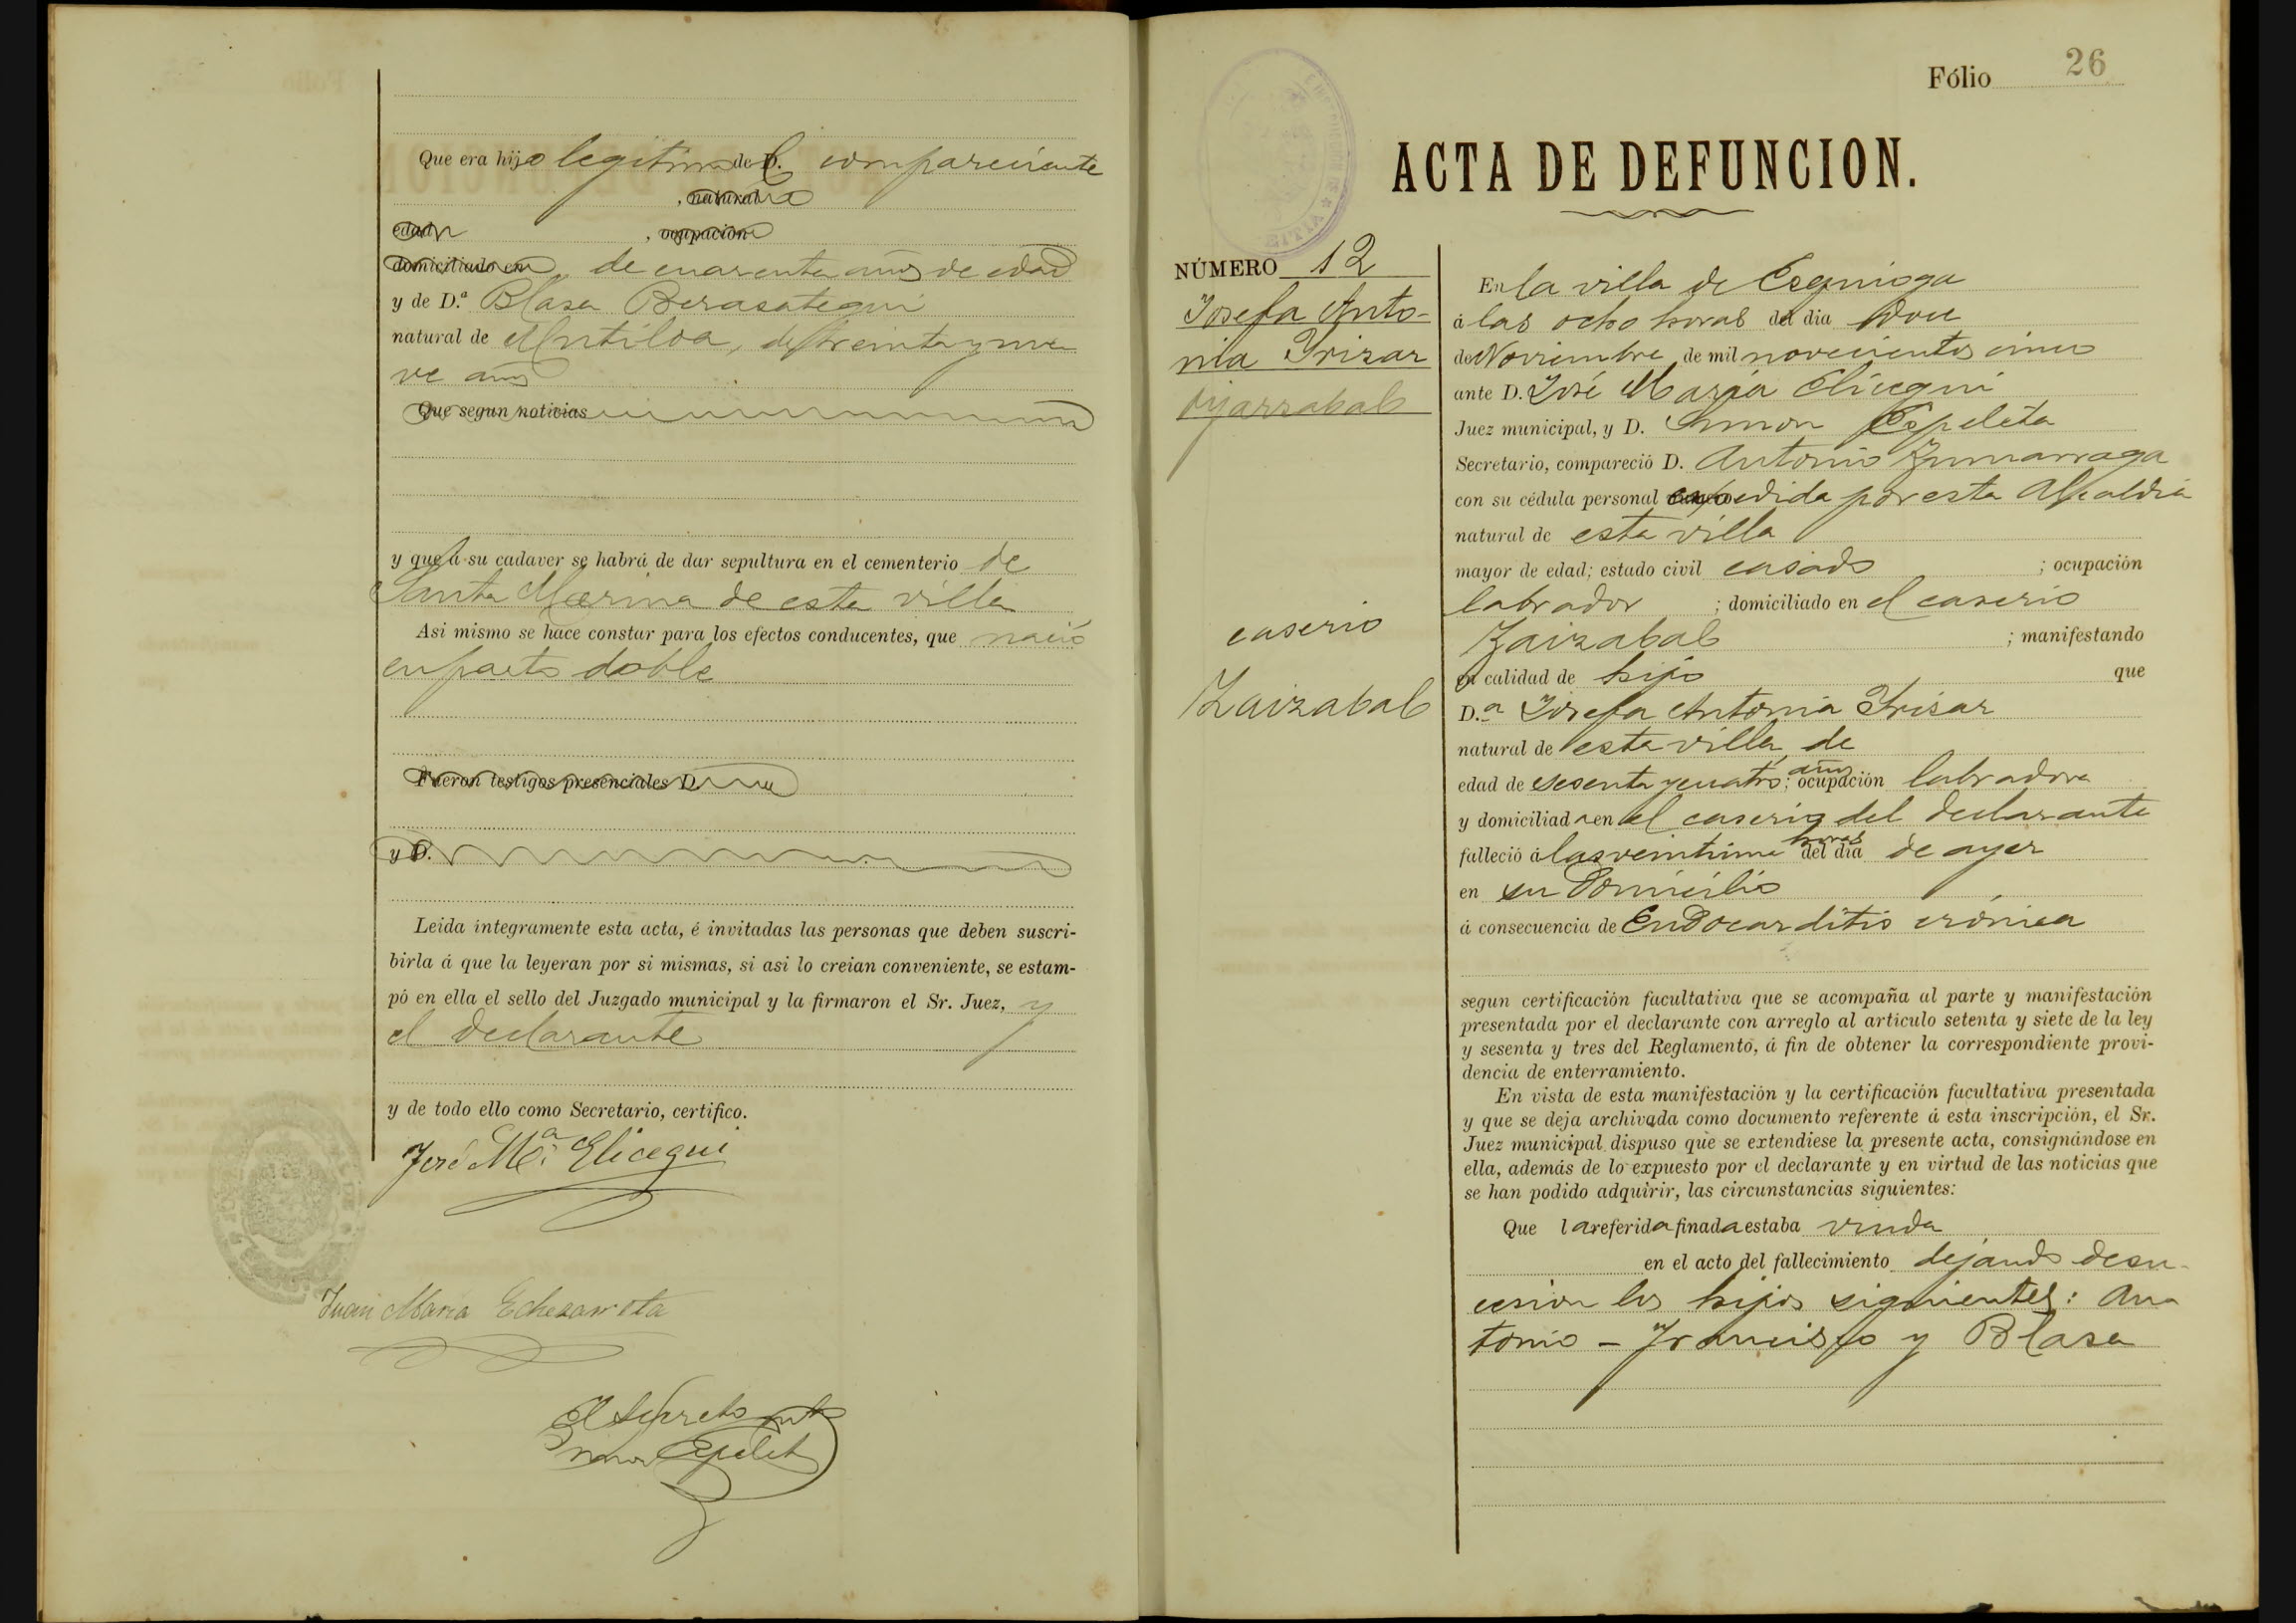 Que era hijo legitimo del compareciente
, natural
edad , ocupación
domiciliado en de cuarenta años de edad
y de D.ª Blasa Berasategui
natural de Mutiloa, de treinta y nue
ve años
Que segun noticias
y que á su cadaver se habrá de dar sepultura en el cementerio de
Santa Marina de esta villa
Asi mismo se hace constar para los efectos conducentes, que nació
en parto doble
Fueron testigos presenciales D.
y D.
Leida íntegramente esta acta, é invitadas las personas que deben suscri-
birla á que la leyeran por si mismas, si asi lo creian conveniente, se estam-
pó en ella el sello del Juzgado municipal y la firmaron el Sr. Juez, y
el declarante
y de todo ello como Secretario, certifico.
José M.ª Elicegui
Juan Maria Echezarreta
El Secreto
Simon Ezpeleta
Fólio 26
ACTA DE DEFUNCION.
NÚMERO 12
Josefa Anto-
nia Irizar
Oyarzabal
caserio
Zaizabal
En la villa de Ezquioga
á las ocho horas del dia doce
de Noviembre de mil novecientos cinco
ante D. José María Elicegui
Juez municipal, y D. Simon Ezpeleta
Secretario, compareció D. Antonio Zumarraga
con su cédula personal expedida por esta Alcaldia
natural de esta villa
mayor de edad; estado civil casado ; ocupación
labrador ; domiciliado en el caserio
Zaizabal ; manifestando
en calidad de hijo que
D.ª Josefa Antonia Irizar
natural de esta villa de
edad de sesenta y cuatro años; ocupación labradora
y domiciliada en el caserio del declarante
falleció á las veintiuna horas del dia de ayer
en su domicilio
á consecuencia de Endocarditis crónica
segun certificación facultativa que se acompaña al parte y manifestación
presentada por el declarante con arreglo al artículo setenta y siete de la ley
y sesenta y tres del Reglamento, á fin de obtener la correspondiente provi-
dencia de enterramiento.
En vista de esta manifestación y la certificación facultativa presentada
y que se deja archivada como documento referente á esta inscripción, el Sr.
Juez municipal dispuso que se extendiese la presente acta, consignándose en
ella, además de lo expuesto por el declarante y en virtud de las noticias que
se han podido adquirir, las circunstancias siguientes:
Que la referida finada estaba viuda
en el acto del fallecimiento dejando de su-
cesion los hijos siguientes: An
tonio - Francisco y Blasa